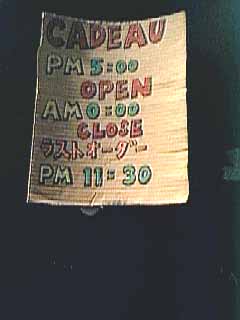 CADEAU
PM 5:00
OPEN
AM 0:00
CLOSE
ラストオーダー
PM 11:30